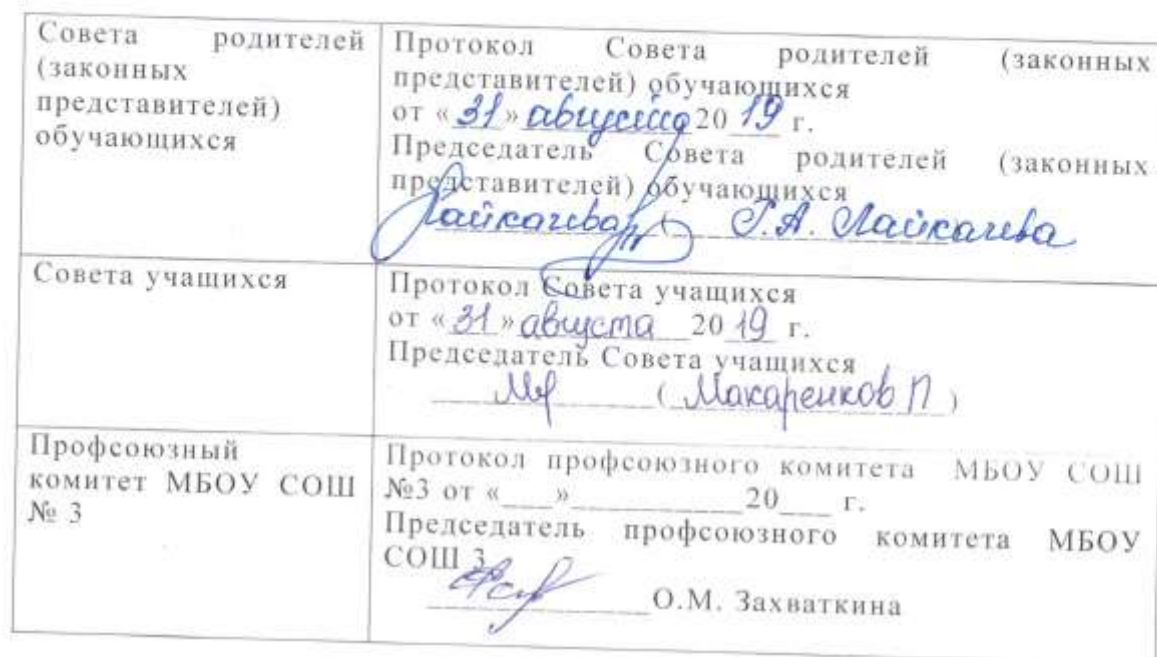 Совета родителей
(законных
представителей)
обучающихся
Протокол Совета родителей (законных
представителей) обучающихся
от «31» августа 20 19 г.
Председатель Совета родителей (законных
представителей) обучающихся
( Г.А. Лайкачева
Совета учащихся
Протокол Совета учащихся
от «31» августа 20 19 г.
Председатель Совета учащихся
( Макаренков П )
Профсоюзный
комитет МБОУ СОШ
№ 3
Протокол профсоюзного комитета МБОУ СОШ
№3 от «___»___________20___ г.
Председатель профсоюзного комитета МБОУ
СОШ 3
О.М. Захваткина